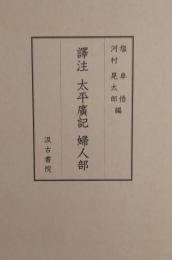 塩卓悟
河村晃太郎 編
譯注 太平廣記 婦人部
汲古書院